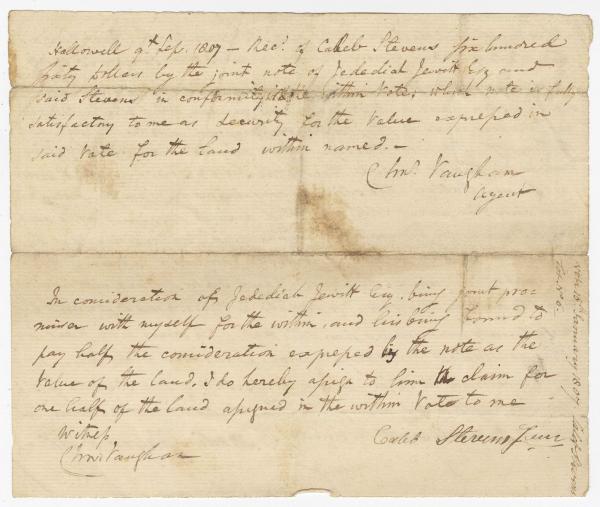 Hallowell 9th Feb. 1807 – Recd. of Caleb Stevens six hundred
sixty dollars by the joint note of Jedediah Jewitt Esq and
said Stevens in conformity to the within Vote; which note is fully
satisfactory to me as security for the value expressed in
said Vote for the land within named. –
Chs. Vaughan
Agent
In consideration of Jedediah Jewitt Esq. being joint pro=
misor with myself for the within, and his being bound to
pay half the consideration expressed by the note as the
Value of the land. I do hereby assign to him the claim for
one half of the land assigned in the within Vote to me
Witness
Caleb Stevens Junr
Chs Vaughan
January 1807